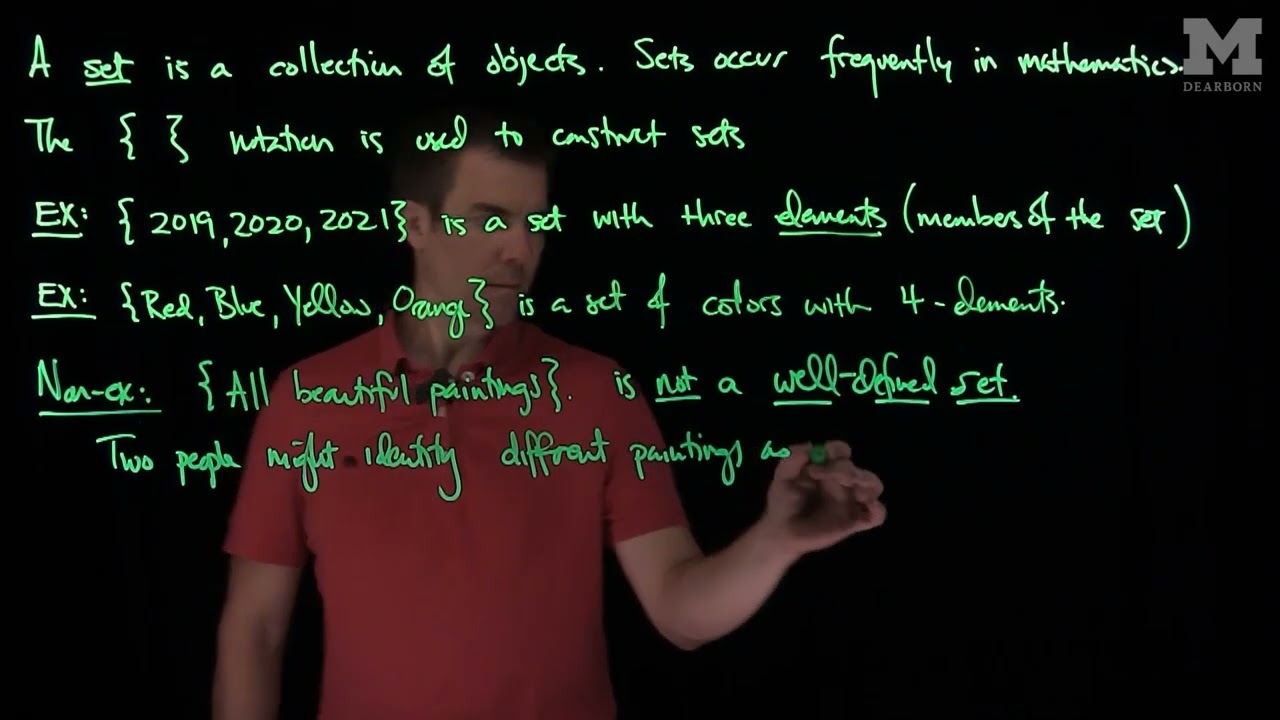 A set is a collection of objects. Sets occur frequently in mathematics.
M
DEARBORN
The { } notation is used to construct sets
EX: {2019, 2020, 2021} is a set with three elements (members of the set)
EX: {Red, Blue, Yellow, Orange} is a set of colors with 4-elements.
Non-ex: {All beautiful paintings}. is not a well-defined set.
Two people might identity different paintings as